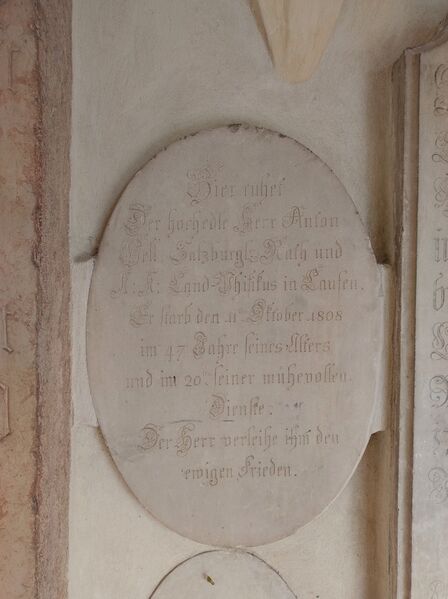 Hier ruhet
Der hochedle Herr Anton
Salzburgl. Rath und
K: K: Land-Phisikus in Laufen.
Er starb den 11ten Oktober 1808
im 47 Jahre seines Alters
und im 20ten seiner mühevollen
Dienste.
Der Herr verleihe ihm den
ewigen Frieden.